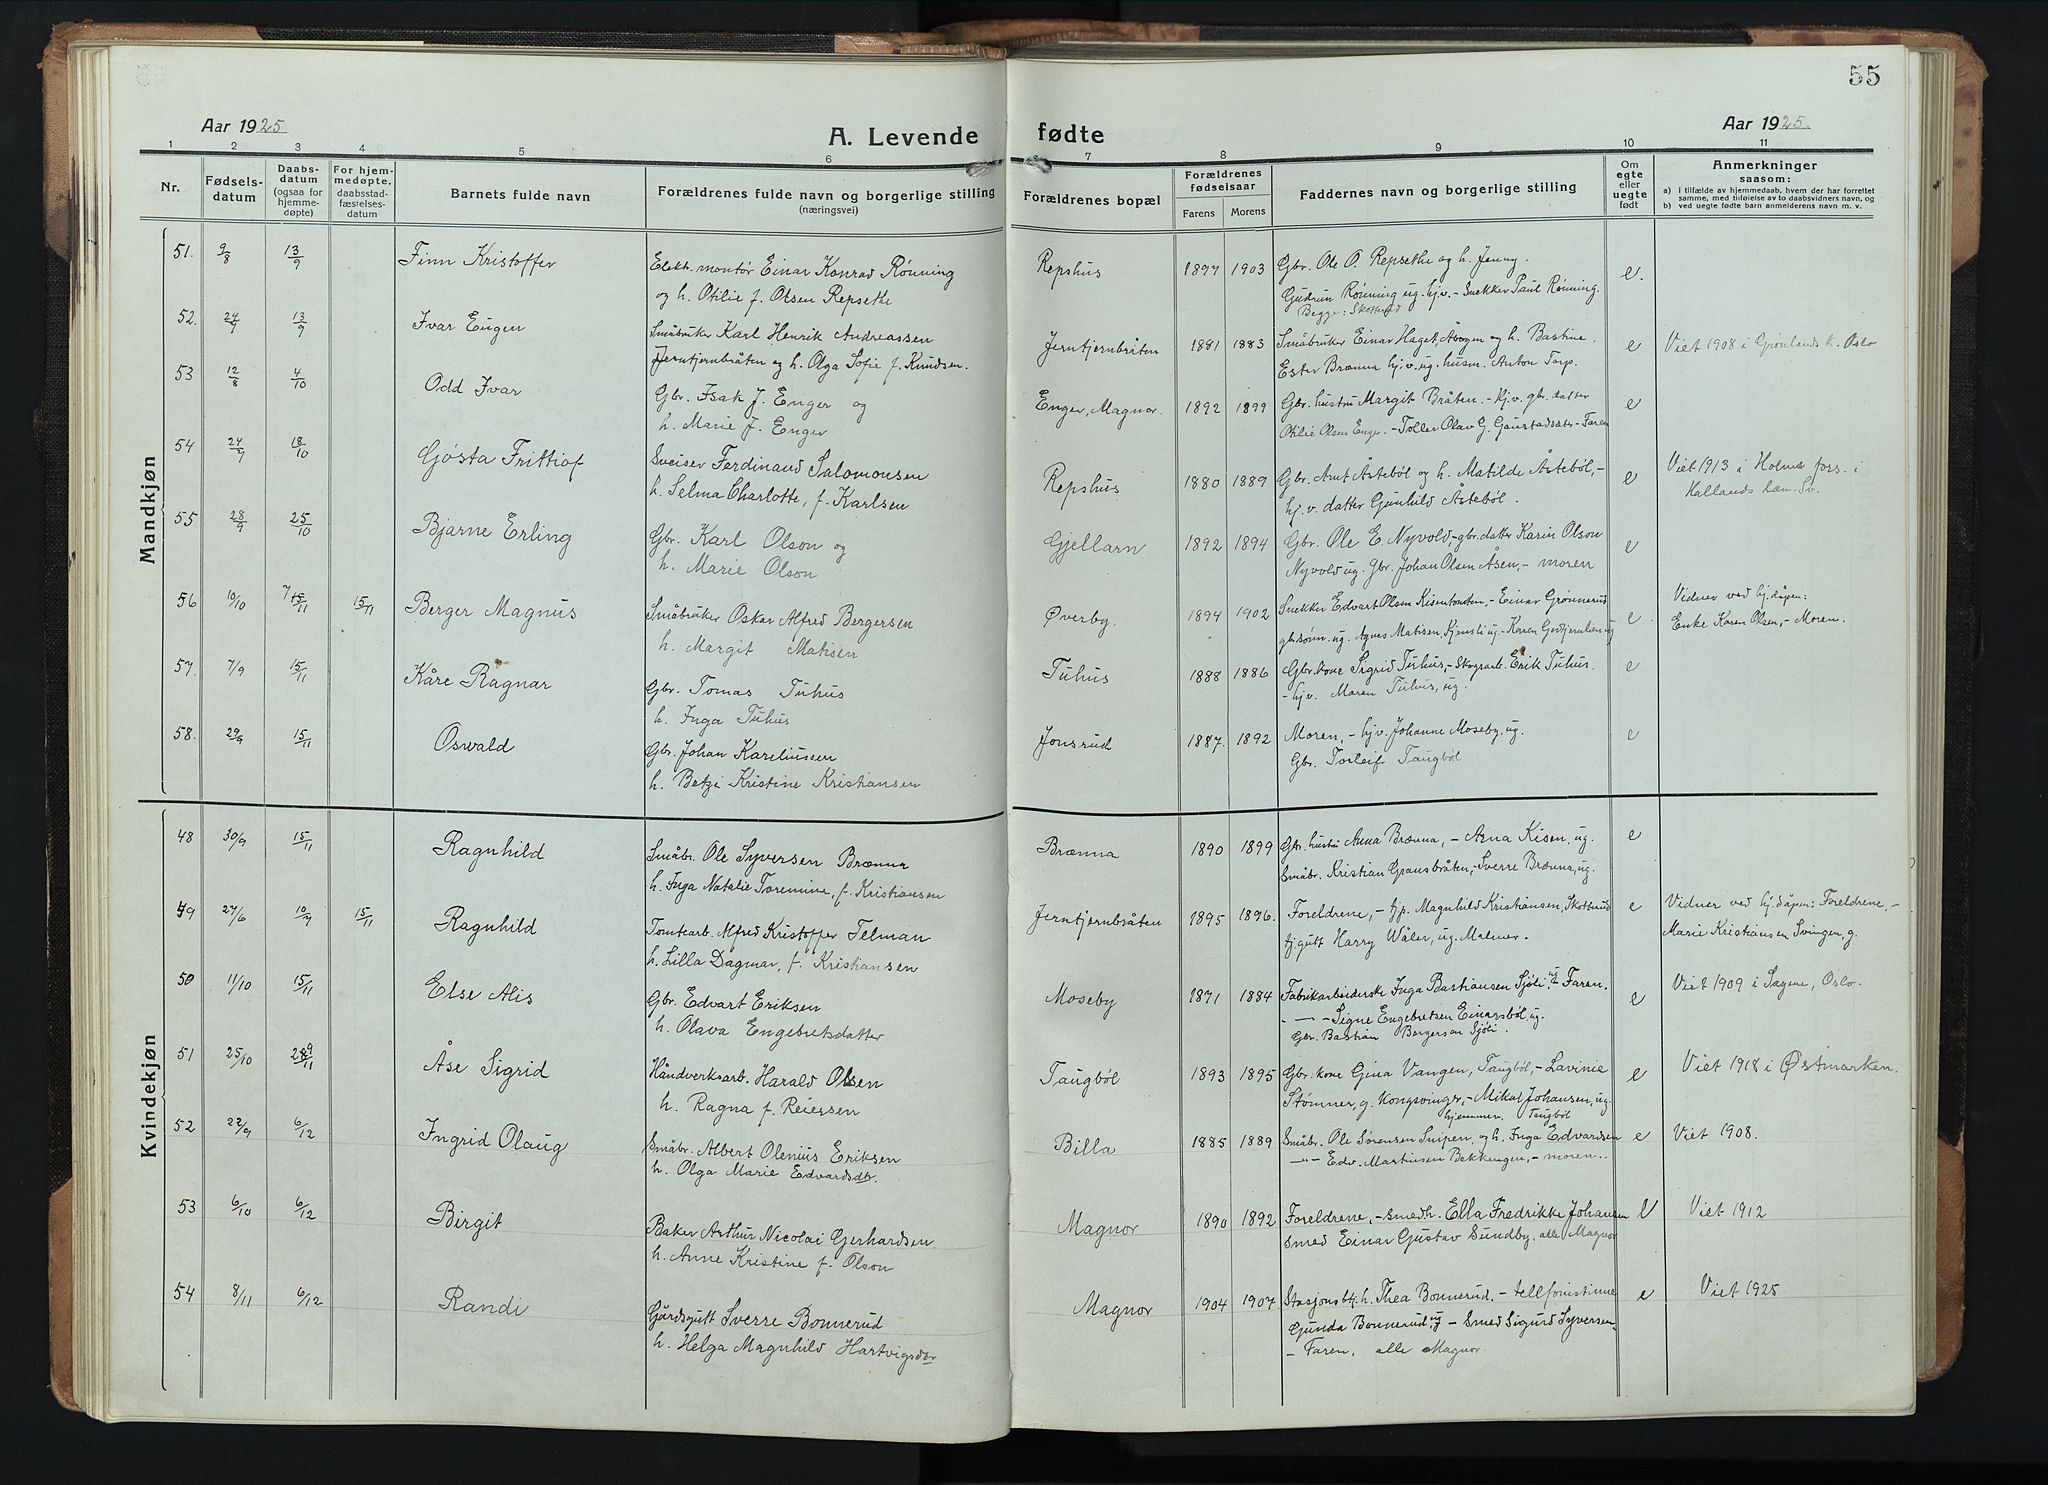 55
Aar 1925
A. Levende fødte
Aar 1925.
1 2 3 4 5 6 7 8 9 10 11
Nr.
Fødsels-
datum
Daabs-
datum
(ogsaa for
hjemme-
døpte)
For hjem-
medøpte,
daabsstad-
fæstelses-
datum
Barnets fulde navn
Forældrenes fulde navn og borgerlige stilling
(næringsvei)
Forældrenes bopæl
Forældrenes
fødselsaar
Farens Morens
Faddernes navn og borgerlige stilling
Om
egte
eller
uegte
født
Anmerkninger
saasom:
a) i tilfælde av hjemmedaab, hvem der har forrettet
samme, med tilføielse av to daabsvidners navn, og
b) ved uegte fødte barn anmelderens navn m. v.
Mandkjøn
51. 9/8 13/9 Finn Kristoffer
Elektr. montör Einar Konrad Rönning
og h. Otilie f. Olsen Repsethe
Repshus 1897 1903
Gbr. Ole O. Repsethe og h. Jenny.
Gudrun Rönning ug. hj.v. - Snekker Paul Rönning.
Begge: Skotterud
e.
52. 24/9 13/9 Ivar Eugen
Småbruker Karl Henrik Andreassen
Jerntjernbråten og h. Olga Sofie f. Knudsen.
Jerntjernbråten 1881 1883
Småbruker Einar Haget, Åbogen og h. Bastine.
Ester Brænna hj.v. ug. husm. Anton Torp.
e
Viet 1908 i Grönlands k. Oslo
53 12/8 4/10 Odd Ivar
Gbr. Isak J. Enger og
h. Marie J. Enger
Enger, Magnor. 1892 1899
Gbr. hustru Margit Bråten. - hj.v. gbr. datter
Otilie Olsen Enger. - Toller Olav G. Gaustadsæter - Faren
e
54 24/9 18/10 Gösta Frittiof
Sveiser Ferdinand Salomonsen
h. Selma Charlotte, f. Karlsen
Repshus 1880 1889
Gbr. Amt Åstebøl og h. Matilde Åstebøl, -
hj. v. datter Gunhild Åstebøl.
e
Viet 1913 i Holms fors. i
Hallands læn. Sv.
55 28/9 25/10 Bjarne Erling
Gbr. Karl Olson og
h. Marie Olson
Gjellarn 1892 1894
Gbr. Ole E. Nyvold, - gbr. datter Karin Olson
Nyvold ug. Gbr. Johan Olsen Åsen, - moren
e
56 10/10 15/11 15/11 Berger Magnus
Småbruker Oskar Alfred Bergersen
h. Margit Matisen
Øverby. 1894 1902
Snekker Edvart Olsen Kisentomten, - Einar Grønnerud
gbr.sønn. ug. Agnes Matisen, Kjensli ug. - Karen ug
e.
Vidner ved hj.dåpen:
Enke Karen Olsen, - Moren.
57. 7/9 15/11 Kåre Ragnar
Gbr. Tomas Tuhus
h. Inga Tuhus
Tuhus 1888 1886
Gbr. kone Sigrid Tuhus, - Skogsarb. Erik Tuhus.
- hj.v. Maren Tuhus, ug.
e
58. 29/9 15/11 Oswald
Gbr. Johan Kareliussen
h. Betzi Kristine Kristiansen
Jonsrud 1887. 1892
Moren, - hj.v. Johanne Moseby, ug.
Gbr. Torleif Taugbøl
e
Kvindekjøn
48 30/9 15/11 Ragnhild
Småbr. Ole Syversen Brænna
h. Inga Natalie Toremine, f. Kristiansen
Brænna 1890 1899
Gbr. hustru Anna Brænna, - Asna Kisen, ug.
Småbr. Kristian Gransbråten, - Sverre Brænna, ug.
e
49 27/6 10/7 15/11 Ragnhild
Tomtearb. Alfred Kristoffer Telman
h. Lilla Dagmar, f. Kristiansen
Jerntjernbråten 1895 1896.
Foreldrene, - tj.p. Magnhild Kristiansen, Skotterud
tj.gutt Harry Wåler, ug. Malmer.
e
Vidner ved hj.dåpen: Foreldrene, -
Marie Kristiansen Svingen, g.
50 11/10 15/11 Else Alis
Gbr. Edvart Eriksen
h. Olava Engebretsdatter
Moseby 1871 1884
Fabrikarbeiderske Inga Bastiansen Sjöli ug. Faren.
- " - Signe Engebretsen Einarsböl, ug.
Gbr. Bastian Bergersen Sjöli.
e
Viet 1909 i Sagene, Oslo.
51 25/10 29/11 Åse Sigrid
Håndverksarb. Harald Olsen
h. Ragna f. Reiersen
Taugböl 1893 1895
Gbr. kone Gina Vangen, Taugböl, - Lavinie
Stømner, g. Kongsvinger, - Mikal Johansen, ug.
hjemmev. Taugböl
e
Viet 1918 i Østmarken.
52 22/9 6/12 Ingrid Olaug
Småbr. Albert Olenius Eriksen
h. Olga Marie Edvardsdtr.
Billa 1885 1889
Småbr. Ole Sørensen Snipen, og h. Inga Edvardsen
- " - Edv. Martinsen Bekkengen, - moren.
e
Viet 1908.
53 6/10 6/12 Birgit
Baker Arthur Nicolai Gerhardsen
h. Anne Kristine f. Olson
Magnor 1890 1892
Foreldrene, - smedh. Ella Fredrikke Johansen
smed Einar Gustav Sundby, alle Magnor
e
Viet 1912
54 8/11 6/12 Randi
Gårdsgutt Sverre Bonnerud
h. Helga Magnhild Hartvigsdtr
Magnor 1904 1907
Stasjonsbtj. h. Thea Bonnerud. - telefonistinne
Gunda Bonnerud, ug - Smed Sigurd Syversen -
- Faren, alle Magnor.
e
Viet 1925